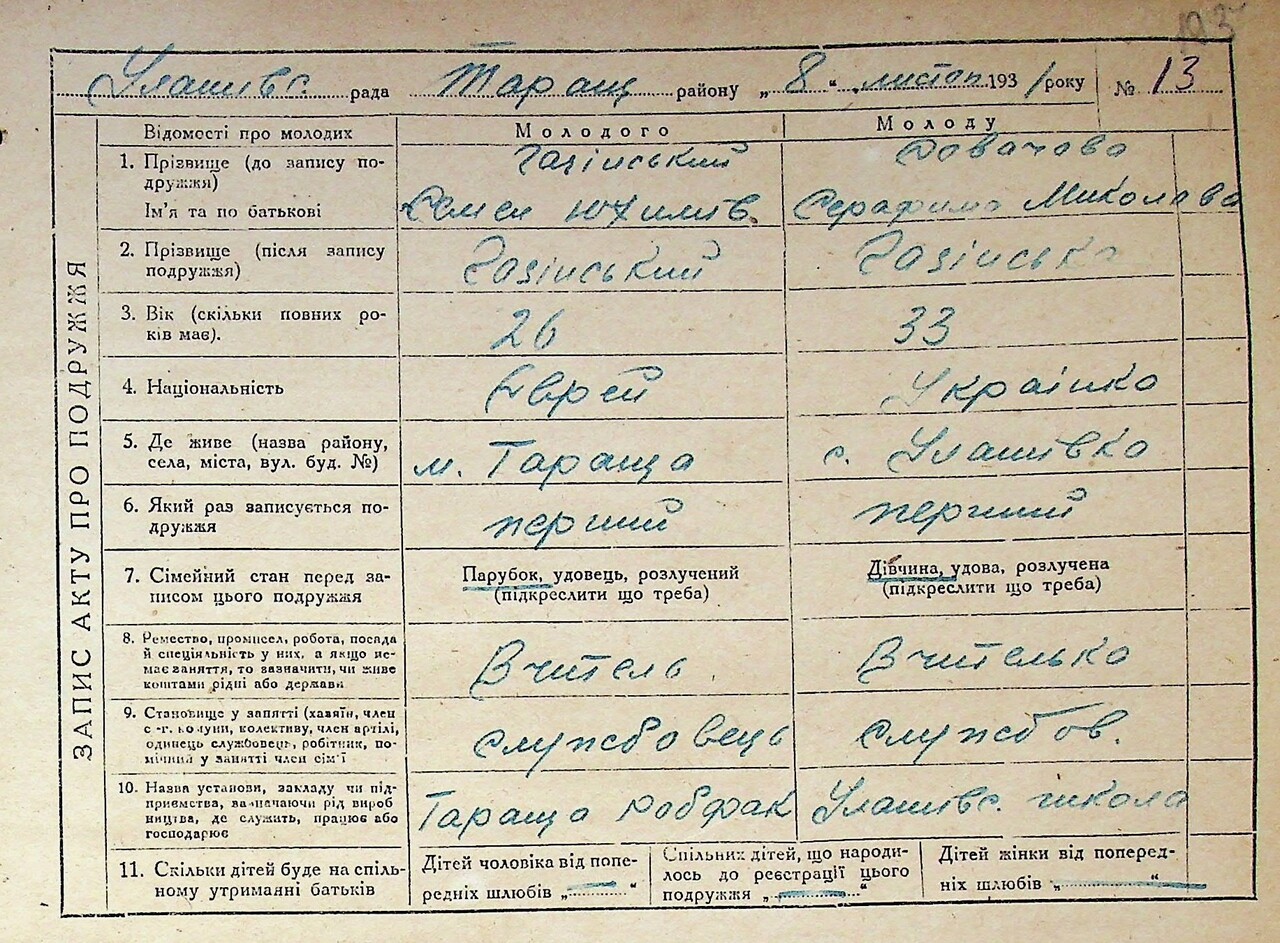 193
Улашівс. рада Таращ району „8“ листоп 1931 року № 13
ЗАПИС АКТУ ПРО ПОДРУЖЖЯ
Відомості про молодих Молодого Молоду
1. Прізвище (до запису по-
дружжя) Газінський
Ім'я та по батькові Семен Юхимів. Серафима Миколаєва
2. Прізвище (після запису
подружжя) Газінський Газінська
3. Вік (скільки повних ро-
ків має). 26 33
4. Національність Єврей Українка
5. Де живе (назва району,
села, міста, вул. буд. №) м. Тараща с. Улашівка
6. Який раз записується по-
дружжя перший перший
7. Сімейний стан перед за-
писом цього подружжя
Парубок, удовець, розлучений
(підкреслити що треба)
Дівчина, удова, розлучена
(підкреслити що треба)
8. Ремество, промисел, робота, посада
й спеціяльність у них, а якщо не-
має заняття, то зазначити, чи живе
коштами рідні або держави
Вчитель Вчителька
9. Становище у занятті (хазяїн, член
с.-г. комуни, колективу, член артілі,
одинець службовець, робітник, по-
мічний у занятті член сім'ї
службовець службов.
10. Назва установи, закладу чи під-
приємства, зазначаючи рід вироб
ництва, де служить, працює або
господарює
Тараща робфак Улашівс. школа
11. Скільки дітей буде на спіль-
ному утриманні батьків
Дітей чоловіка від попе-
редніх шлюбів „—“
Спільних дітей, що народи-
лось до реєстрації цього
подружжя „—“
Дітей жінки від поперед-
ніх шлюбів „—“